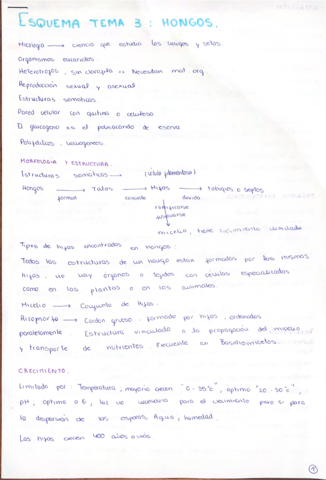 ESQUEMA TEMA 3 : HONGOS.
Micología → ciencia que estudia los hongos y setas
Organismos eucariotas
Heterótrofos, sin cloroplasto => Necesitan mat. org.
Reproducción sexual y asexual
Estructuras somáticas
Pared celular con quitina o celulosa
El glucógeno es el polisacárido de reserva
Polifiléticos
MORFOLOGÍA Y ESTRUCTURA.
Estructuras somáticas → (células filamentosas)
Hongos → Talos → Hifas → tabiques o septos
forman consiste dividido
ramificarse
micelio, tiene crecimiento ilimitado
Tipos de hifas encontrados en hongos:
Todas las estructuras de un hongo están formadas por las mismas
hifas, no hay órganos o tejidos con células especializadas
como en las plantas o en los animales.
Micelio → Conjunto de hifas.
Rizomorfo → Cordón grueso formado por hifas, ordenadas
paralelamente Estructura vinculada a la propagación del micelio
y transporte de nutrientes. Frecuente en Basidiomicetos.
CRECIMIENTO.
Limitado por: Temperatura, mayoría crecen "0-35°c", óptimo "20-30°c",
pH, óptimo a 6, luz no necesaria para el crecimiento pero si para
la dispersión de las esporas, Agua, humedad.
Las hifas crecen 400 años o más
1